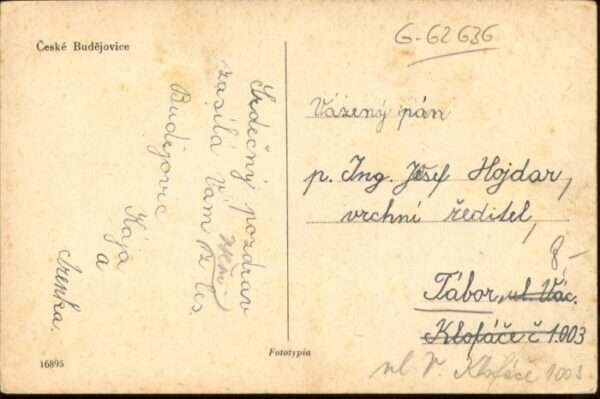 České Budějovice
Srdečný pozdrav
zasílá Vám z čes.
Budějovic
Kája
a
G-62636
Vážený pán
p. Ing. Josef Hojdar,
vrchní ředitel,
8,-
Tábor, ul. Vác.
Klofáče č 1.003
ul. V. Klofáče 1003.
Fototypia
16895